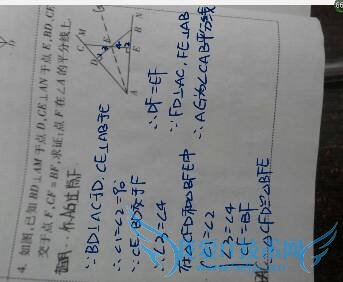 4. 如图,已知BD⊥AM于点D,CE⊥AN于点E,BD,CE
交于点F,CF=BF,求证:点F在∠A的平分线上.
∵BD⊥AC于D,CE⊥AB于E
∴∠1=∠2=90°
∵CE、BD交于F
∴∠3=∠4
在△CFD和△BFE中
∠1=∠2
∠3=∠4
CF=BF
∴△CFD≌△BFE
∴DF=EF
∵FD⊥AC,FE⊥AB
∴AG为∠CAB平分线
A
B
C
D
E
F
M
N